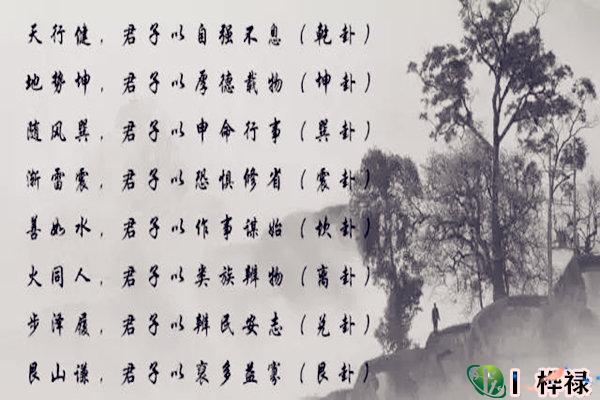 天行健，君子以自强不息（乾卦）
地势坤，君子以厚德载物（坤卦）
随风巽，君子以申命行事（巽卦）
渐雷震，君子以恐惧修省（震卦）
善如水，君子以作事谋始（坎卦）
火同人，君子以类族辨物（离卦）
步泽履，君子以辨民安志（兑卦）
艮山谦，君子以裒多益寡（艮卦）
梓禄